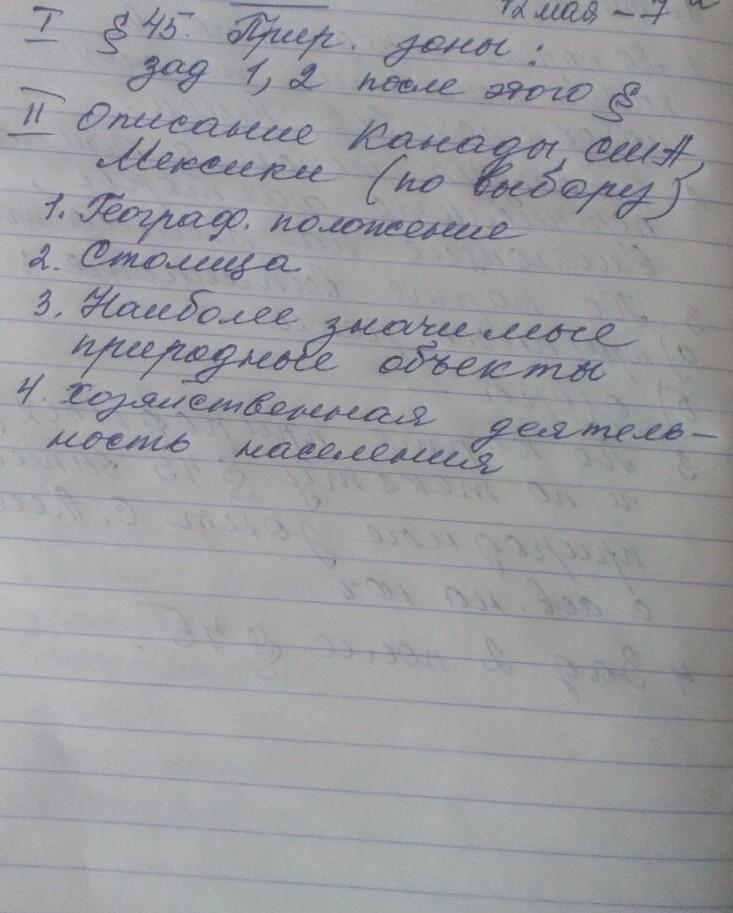 12 мая – 7
I § 45. Прир. зоны:
зад 1, 2 после этого §
II Описание Канады, США,
Мексики (по выбору)
1. Географ. положение
2. Столица
3. Наиболее значимые
природные объекты
4. Хозяйственная деятель-
ность населения